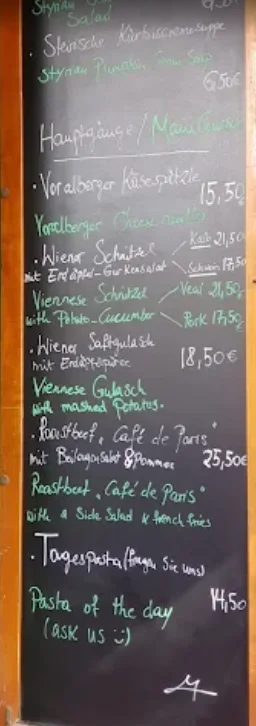 Styrian
Salad
· Steirische Kürbiscremesuppe
Styrian Pumpkin Creme Soup
6,50€
Hauptgänge / Main Courses
· Vorarlberger Käsespätzle
15,50
Vorarlberger Cheese noodles
· Wiener Schnitzel Kalb 21,50
mit Erdäpfel-Gurkensalat Schwein 17,50
Viennese Schnitzel Veal 21,50
with Potato-Cucumber Pork 17,50
· Wiener Saftgulasch
mit Erdäpfelpüree 18,50€
Viennese Gulasch
with mashed Potatos.
· Roastbeef „Café de Paris"
mit Beilagensalat & Pommes 25,50€
Roastbeef „Café de Paris"
with a Side Salad & french fries
· Tagespasta (fragen Sie uns)
Pasta of the day 14,50
(ask us :))